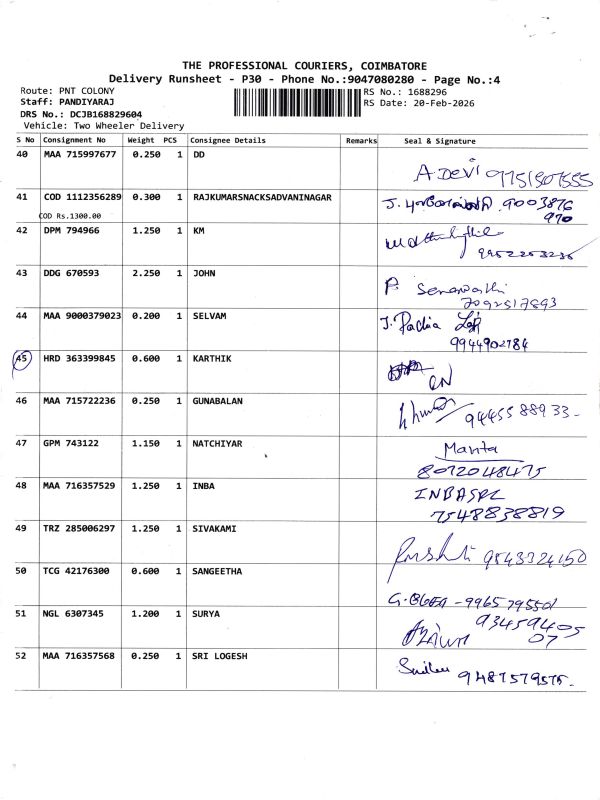 THE PROFESSIONAL COURIERS, COIMBATORE
Delivery Runsheet - P30 - Phone No.:9047080280 - Page No.:4
Route: PNT COLONY
Staff: PANDIYARAJ
DRS No.: DCJB168829604
Vehicle: Two Wheeler Delivery
RS No.: 1688296
RS Date: 20-Feb-2026
S No Consignment No Weight PCS Consignee Details Remarks Seal & Signature
40 MAA 715997677 0.250 1 DD
A.DEVI 9751507555
41 COD 1112356289 0.300 1 RAJKUMARSNACKSADVANINAGAR
COD Rs.1300.00
J. 9003876
970
42 DPM 794966 1.250 1 KM
9952253236
43 DDG 670593 2.250 1 JOHN
P
7092517893
44 MAA 9000379023 0.200 1 SELVAM
J. Padia
9944902784
45 HRD 363399845 0.600 1 KARTHIK
46 MAA 715722236 0.250 1 GUNABALAN
9445588933-
47 GPM 743122 1.150 1 NATCHIYAR
Manta
8072048475
48 MAA 716357529 1.250 1 INBA
INBASRL
7548838819
49 TRZ 285006297 1.250 1 SIVAKAMI
9543324150
50 TCG 42176300 0.600 1 SANGEETHA
51 NGL 6307345 1.200 1 SURYA
93459405
07
52 MAA 716357568 0.250 1 SRI LOGESH
9487579575-